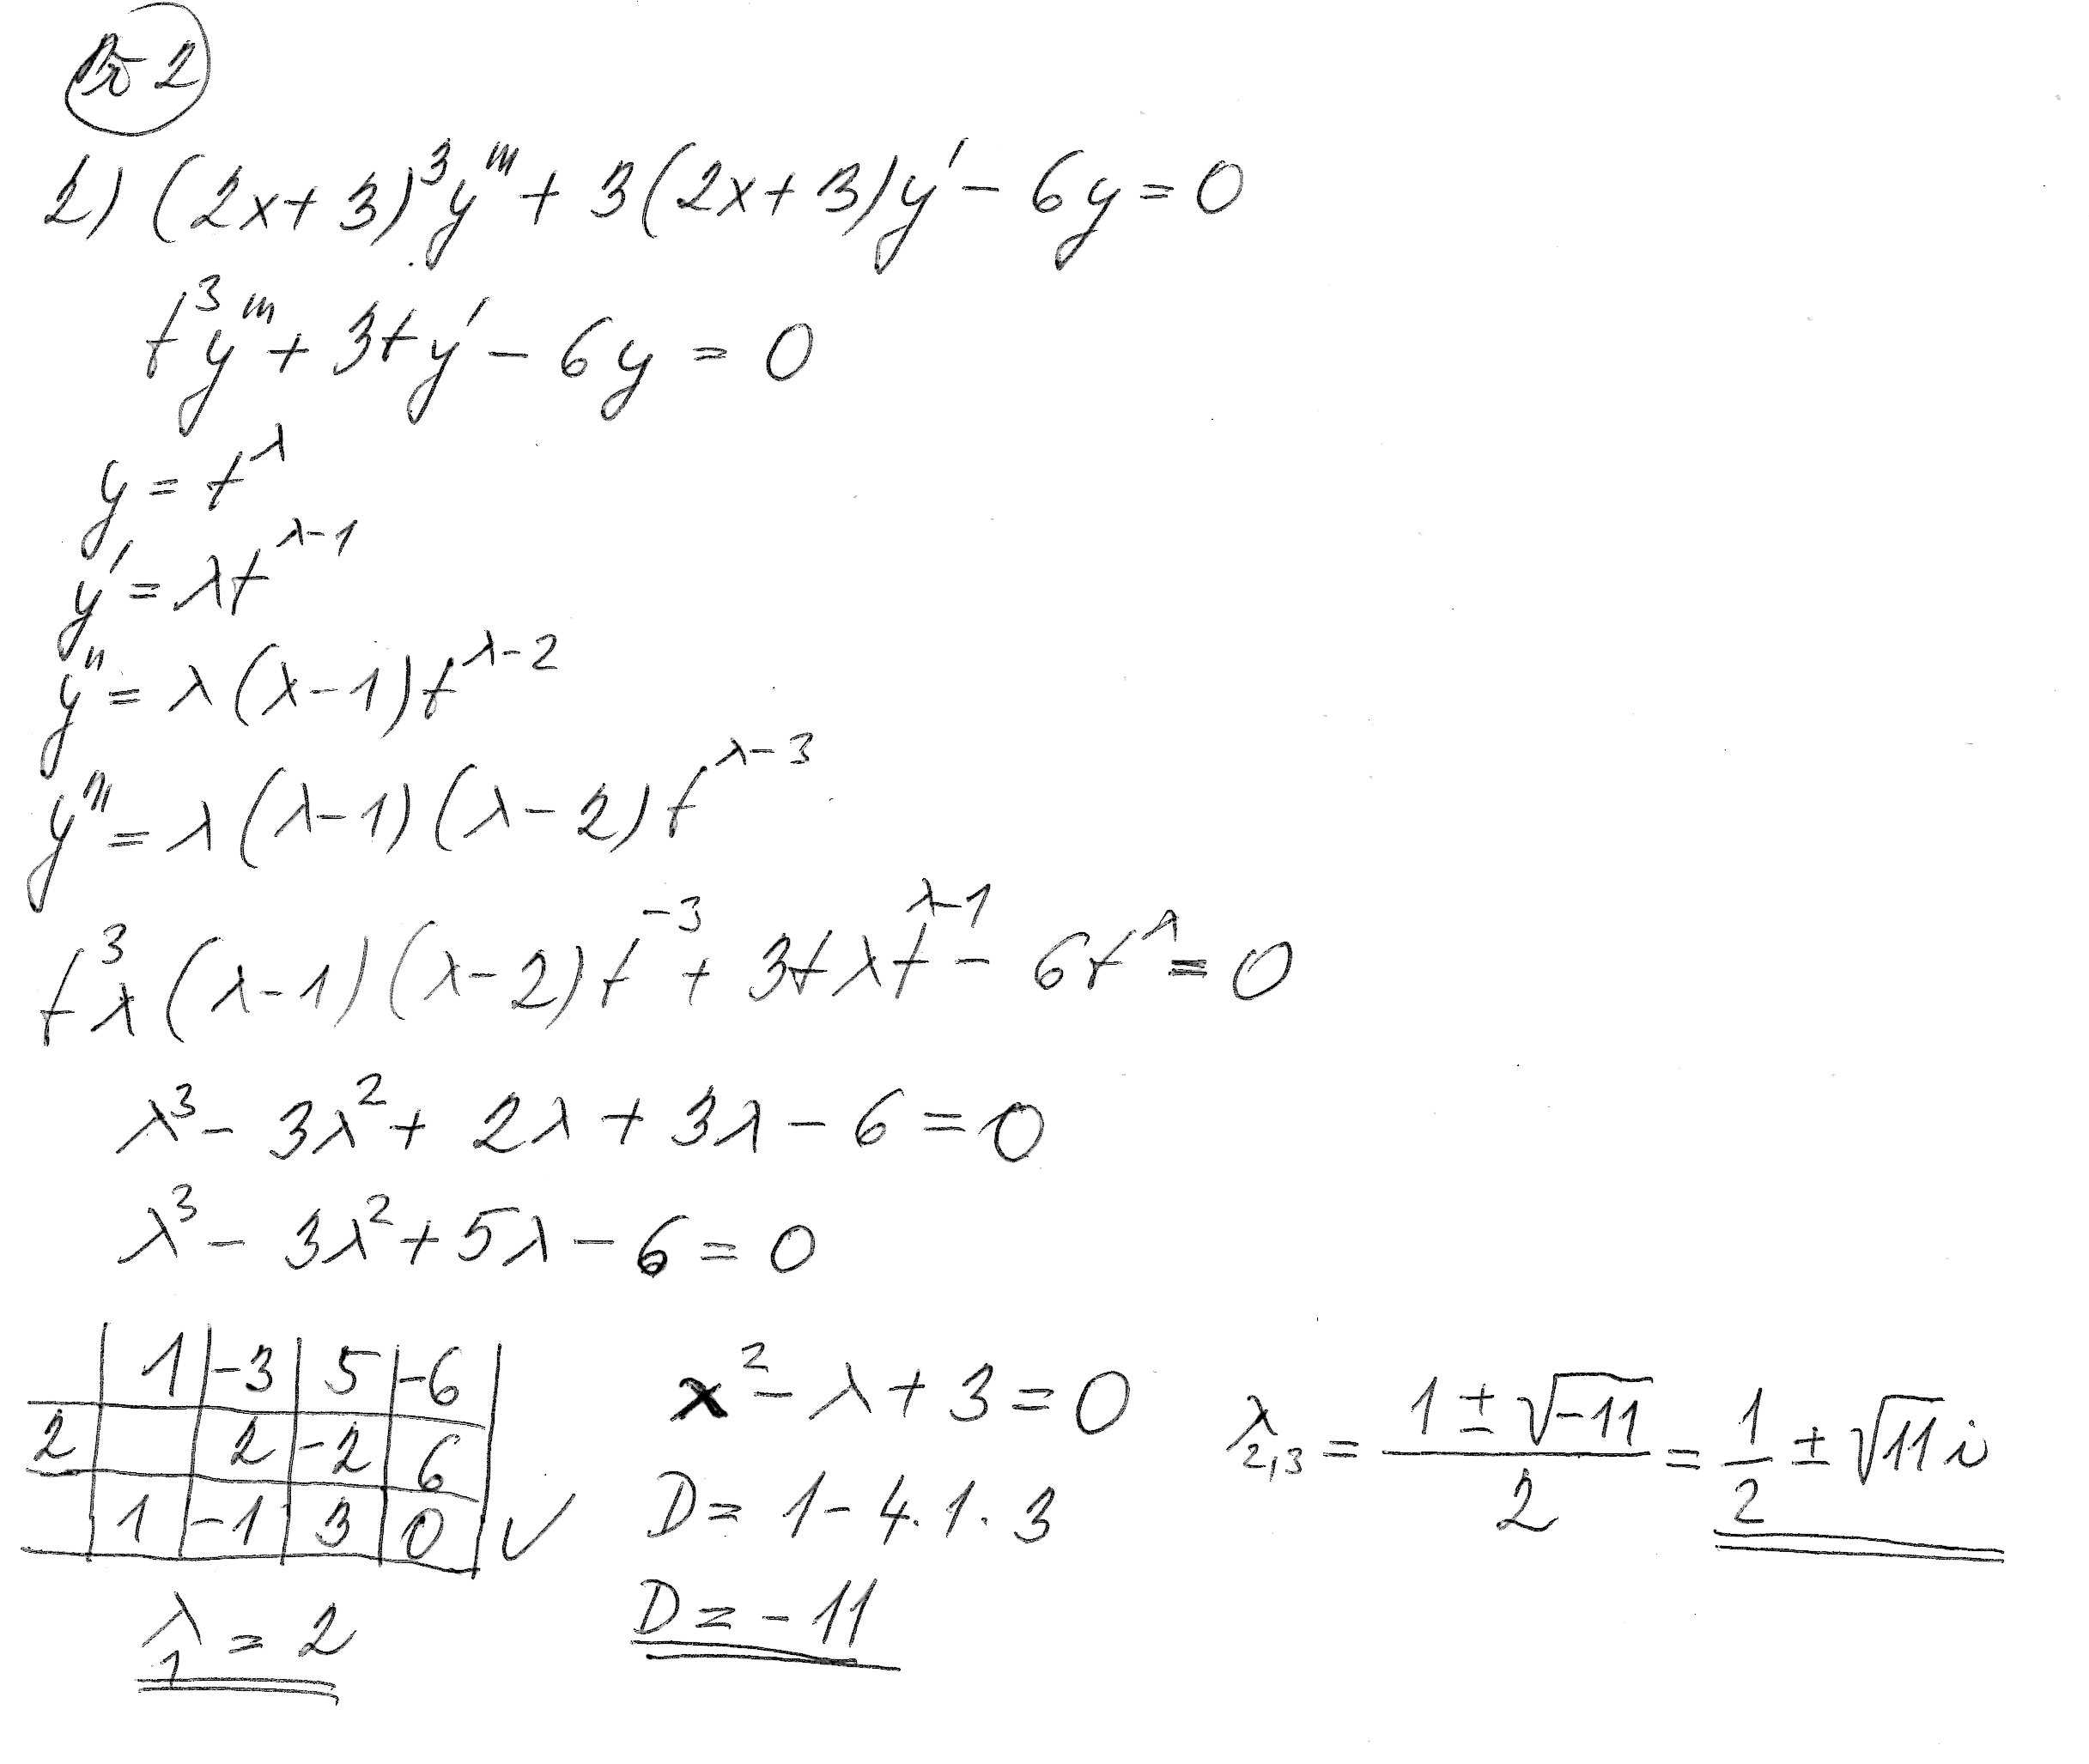 2) (2x+3)³y''' + 3(2x+3)y' - 6y = 0
t³y''' + 3ty' - 6y = 0
y = t^λ
y' = λt^(λ-1)
y'' = λ(λ-1)t^(λ-2)
y''' = λ(λ-1)(λ-2)t^(λ-3)
t³λ(λ-1)(λ-2)t^(-3) + 3tλt^(λ-1) - 6t^λ = 0
λ³ - 3λ² + 2λ + 3λ - 6 = 0
λ³ - 3λ² + 5λ - 6 = 0
1 | -3 | 5 | -6
2 | | 2 | -2 | 6
1 | -1 | 3 | 0 ✓
λ₁ = 2
x² - λ + 3 = 0
D = 1 - 4.1.3
D = -11
λ₂,₃ = (1 ± √-11)/2 = 1/2 ± √11 i